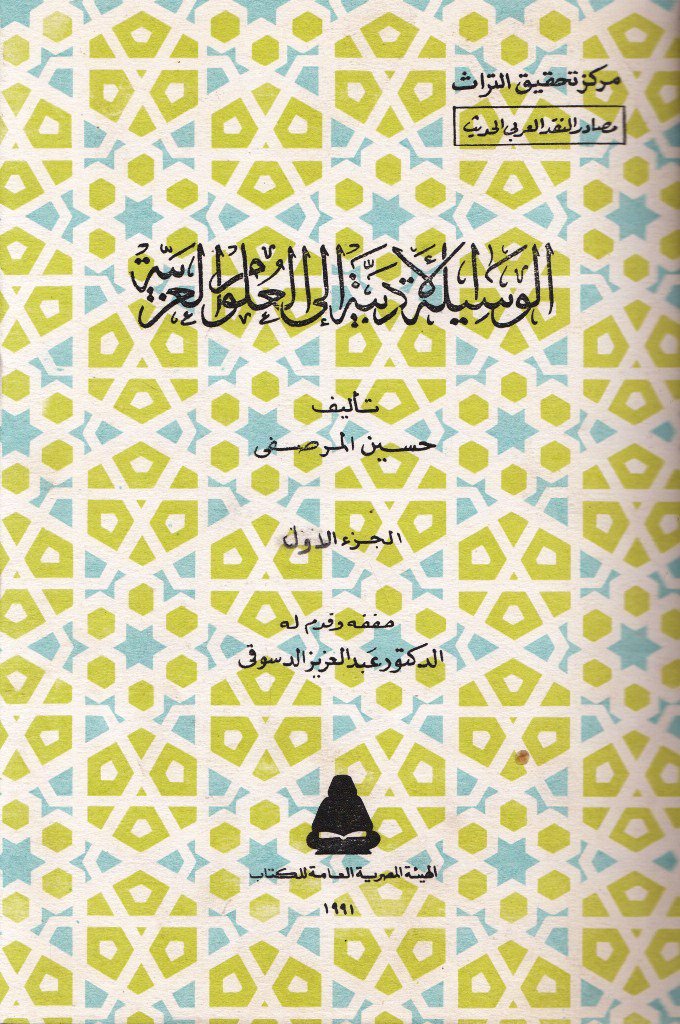 مركز تحقيق التراث
مصادر النقد العربي الحديث
الوسيلة الأدبية إلى العلوم العربية
تأليف
حسين المرصفى
الجزء الاول
حققه وقدم له
الدكتور عبد العزيز الدسوقى
الهيئة المصرية العامة للكتاب
١٩٩١